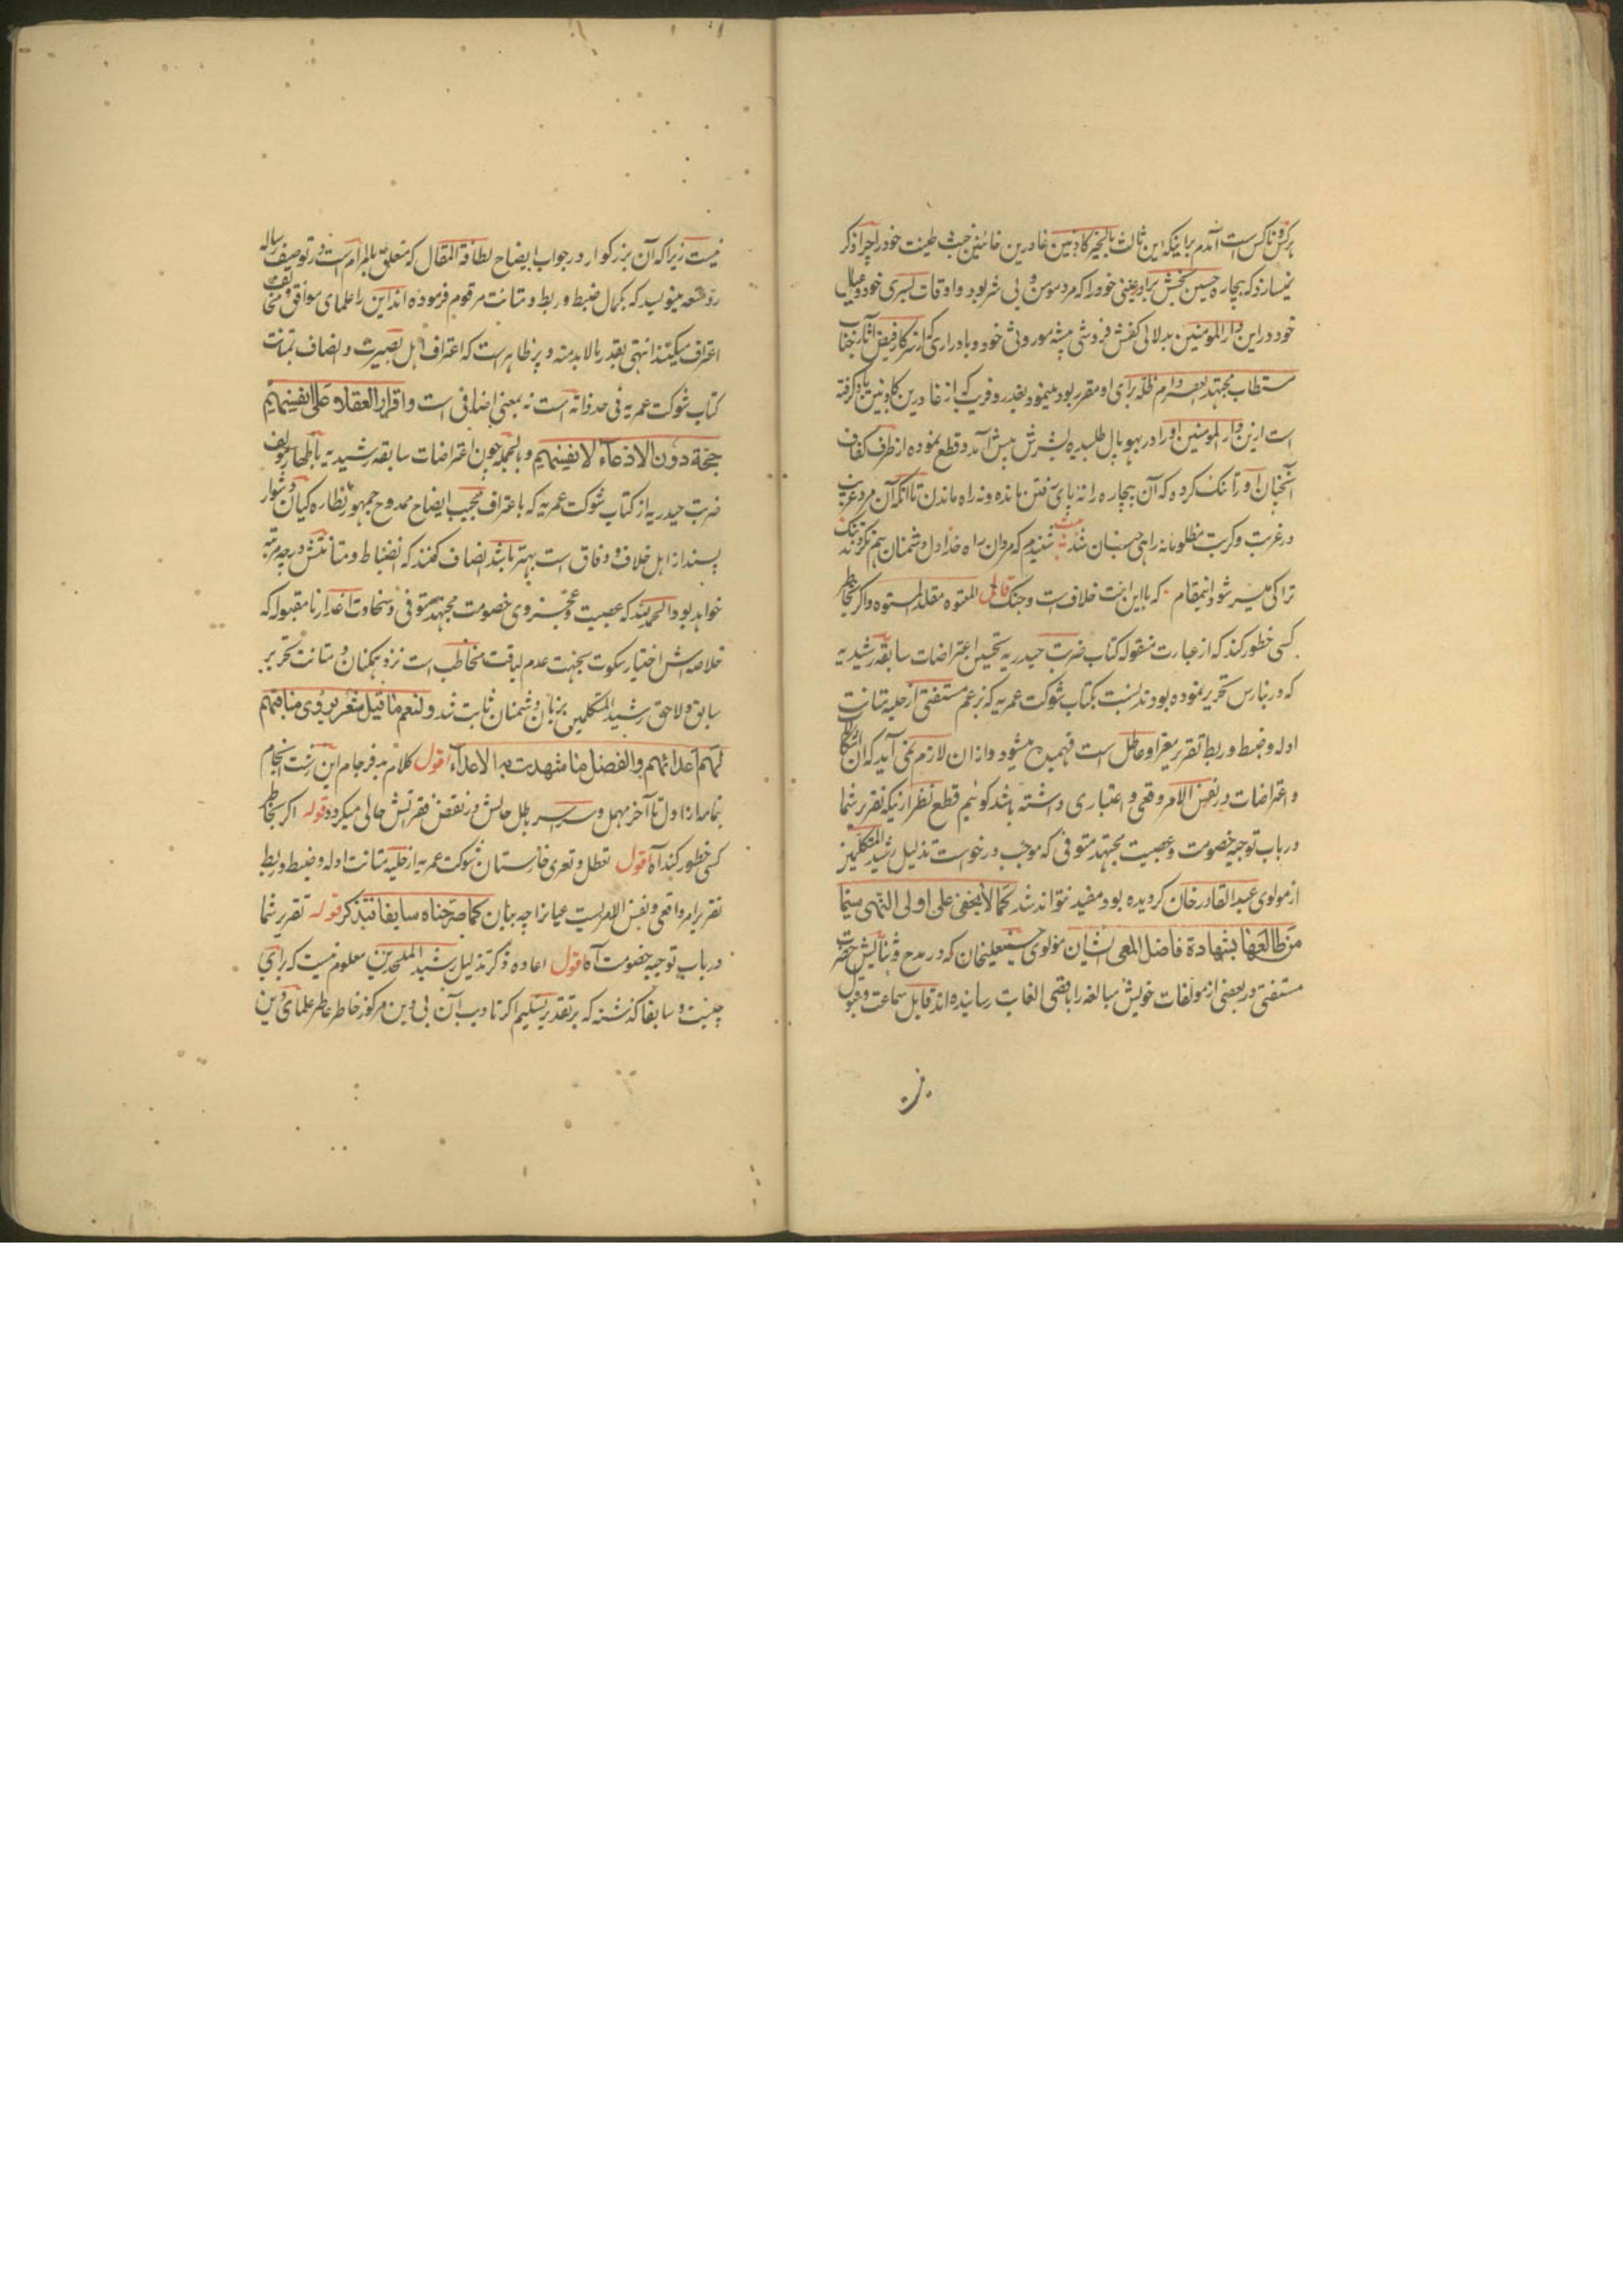 هرکس و ناکس است آمدم براینکه این ثالث بالخیر کاذبین غادرین خائنین خبث طینت خود را چرا ذکر
نمیسازد که بیچاره حسین بخش برادر عینی خود را که مرد مومن و بی شر بود و اوقات بسری خود و عیال
خود در این دار المومنین بدلالی کفش فروشی پیشه موروثی خود و بادراری که از سرکار فیض آثار جناب
مستطاب مجتهد العصر دام ظله برای او مقرر بود مینمود بغدر و فریب که از غادرین کاذبین یاد گرفته
است ازین دار المومنین او را در بهوپال طلبیده بشرش پیش آمد و قطع نموده از طرف کفاف
آنچنان او را تنگ کرده که آن بیچاره را نه پای رفتن مانده و نه راه ماندن تا آنکه آن مرد غریب
در غربت و کربت مظلومانه راهی جنان شد بیت شنیدم که مردان راه خدا دل دشمنان هم نکردند تنگ
ترا کی میسر شود اینمقام که با این انت خلاف است و جنگ قال المعتوه مقلد المستوه و اگر بخاطر
کسی خطور کند که از عبارت منقوله کتاب ضربت حیدریه تحسین اعتراضات سابقه رشیدیه
که در بنارس تحریر نموده بودند نسبت بکتاب شوکت عمریه که بزعم مستفتی از حلیه متانت
ادله و ضبط و ربط تقریر معرا و عاطل است فهمیده میشود و ازان لازم نمی آید که آن اشکالات
و اعتراضات در نفس الامر وقعی و اعتباری داشته باشد گوئیم قطع نظر ازینکه تقریر شما
در باب توجیه خصومت و عصبیت مجتهد متوفی که موجب درخواست تذلیل رشید المتکلمین
از مولوی عبد القادر خان گردیده بود مفید نتواند شد کما لا یخفی علی اولی النهی سیما
من طالعها بشهادة فاضل المعی الشان مولوی حسینعلیخان که در مدح و ثنایش حضرت
مستفتی در بعضی از مولفات خویش مبالغه را باقصی الغایت رسانیده اند قابل سماعت و قبول
نیست زیرا که آن بزرگوار در جواب ایضاح لطافة المقال که متعلق بالمرام است در توصیف رساله
رد متعه مینویسد که بکمال ضبط و ربط و متانت مرقوم فرموده اند این را علمای موافق و مخالف
اعتراف میکنند انتهی بقدر ما لابد منه و پر ظاهر است که اعتراف اهل بصیرت و انصاف بمتانت
کتاب شوکت عمریه فی حد ذاته است نه بمعنی اضافی است و اقرار العقلاء علی انفسهم
حجة دون الادعاء لانفسهم و بالجمله چون اعتراضات سابقه رشیدیه باظهار مولف
ضربت حیدریه از کتاب شوکت عمریه که باعتراف مجیب ایضاح ممدوح جمهور نظارگیان دشوار
پسند از اهل خلاف و وفاق است بهتر باشد انصاف کنند که انضباط و متانتش در چه مرتبه
خواهد بود و الحمد لله که عصبیت و عجز و ی خصومت مجتهد متوفی و سخاوت اعذار نا مقبوله که
خلاصه اش اختیار سکوت بجهت عدم لیاقت مخاطب است نزد همکنان و متانت تحریر
سابق و لاحق رشید المتکلمین بزبان دشمنان ثابت شد و لنعم ما قیل شعر یروی مناقبهم
لهم اعدائهم و الفضل ما شهدت به الاعداء اقول کلام بدفرجام این زشت انجام
بتمامه از اول تا آخر مهمل و سراسر باطل حالش در نقض فقراتش حالی میگردد قوله اگر بخاطر
کسی خطور کند آه اقول تعطل و تعری خارستان شوکت عمریه از حلیه متانت ادله و ضبط و ربط
تقریر امر واقعی و نفس الامریست عیانرا چه بیان کما صرحناه سابقا فتذکر قوله تقریر شما
در باب توجیه خصومت آه اقول اعاده ذکر تذلیل رشید الملحدین معلوم نیست که برای
چیست و سابقا گذشته که بر تقدیر تسلیم اگر تادیب آن بی دین مرکوز خاطر عاطر علمای دین